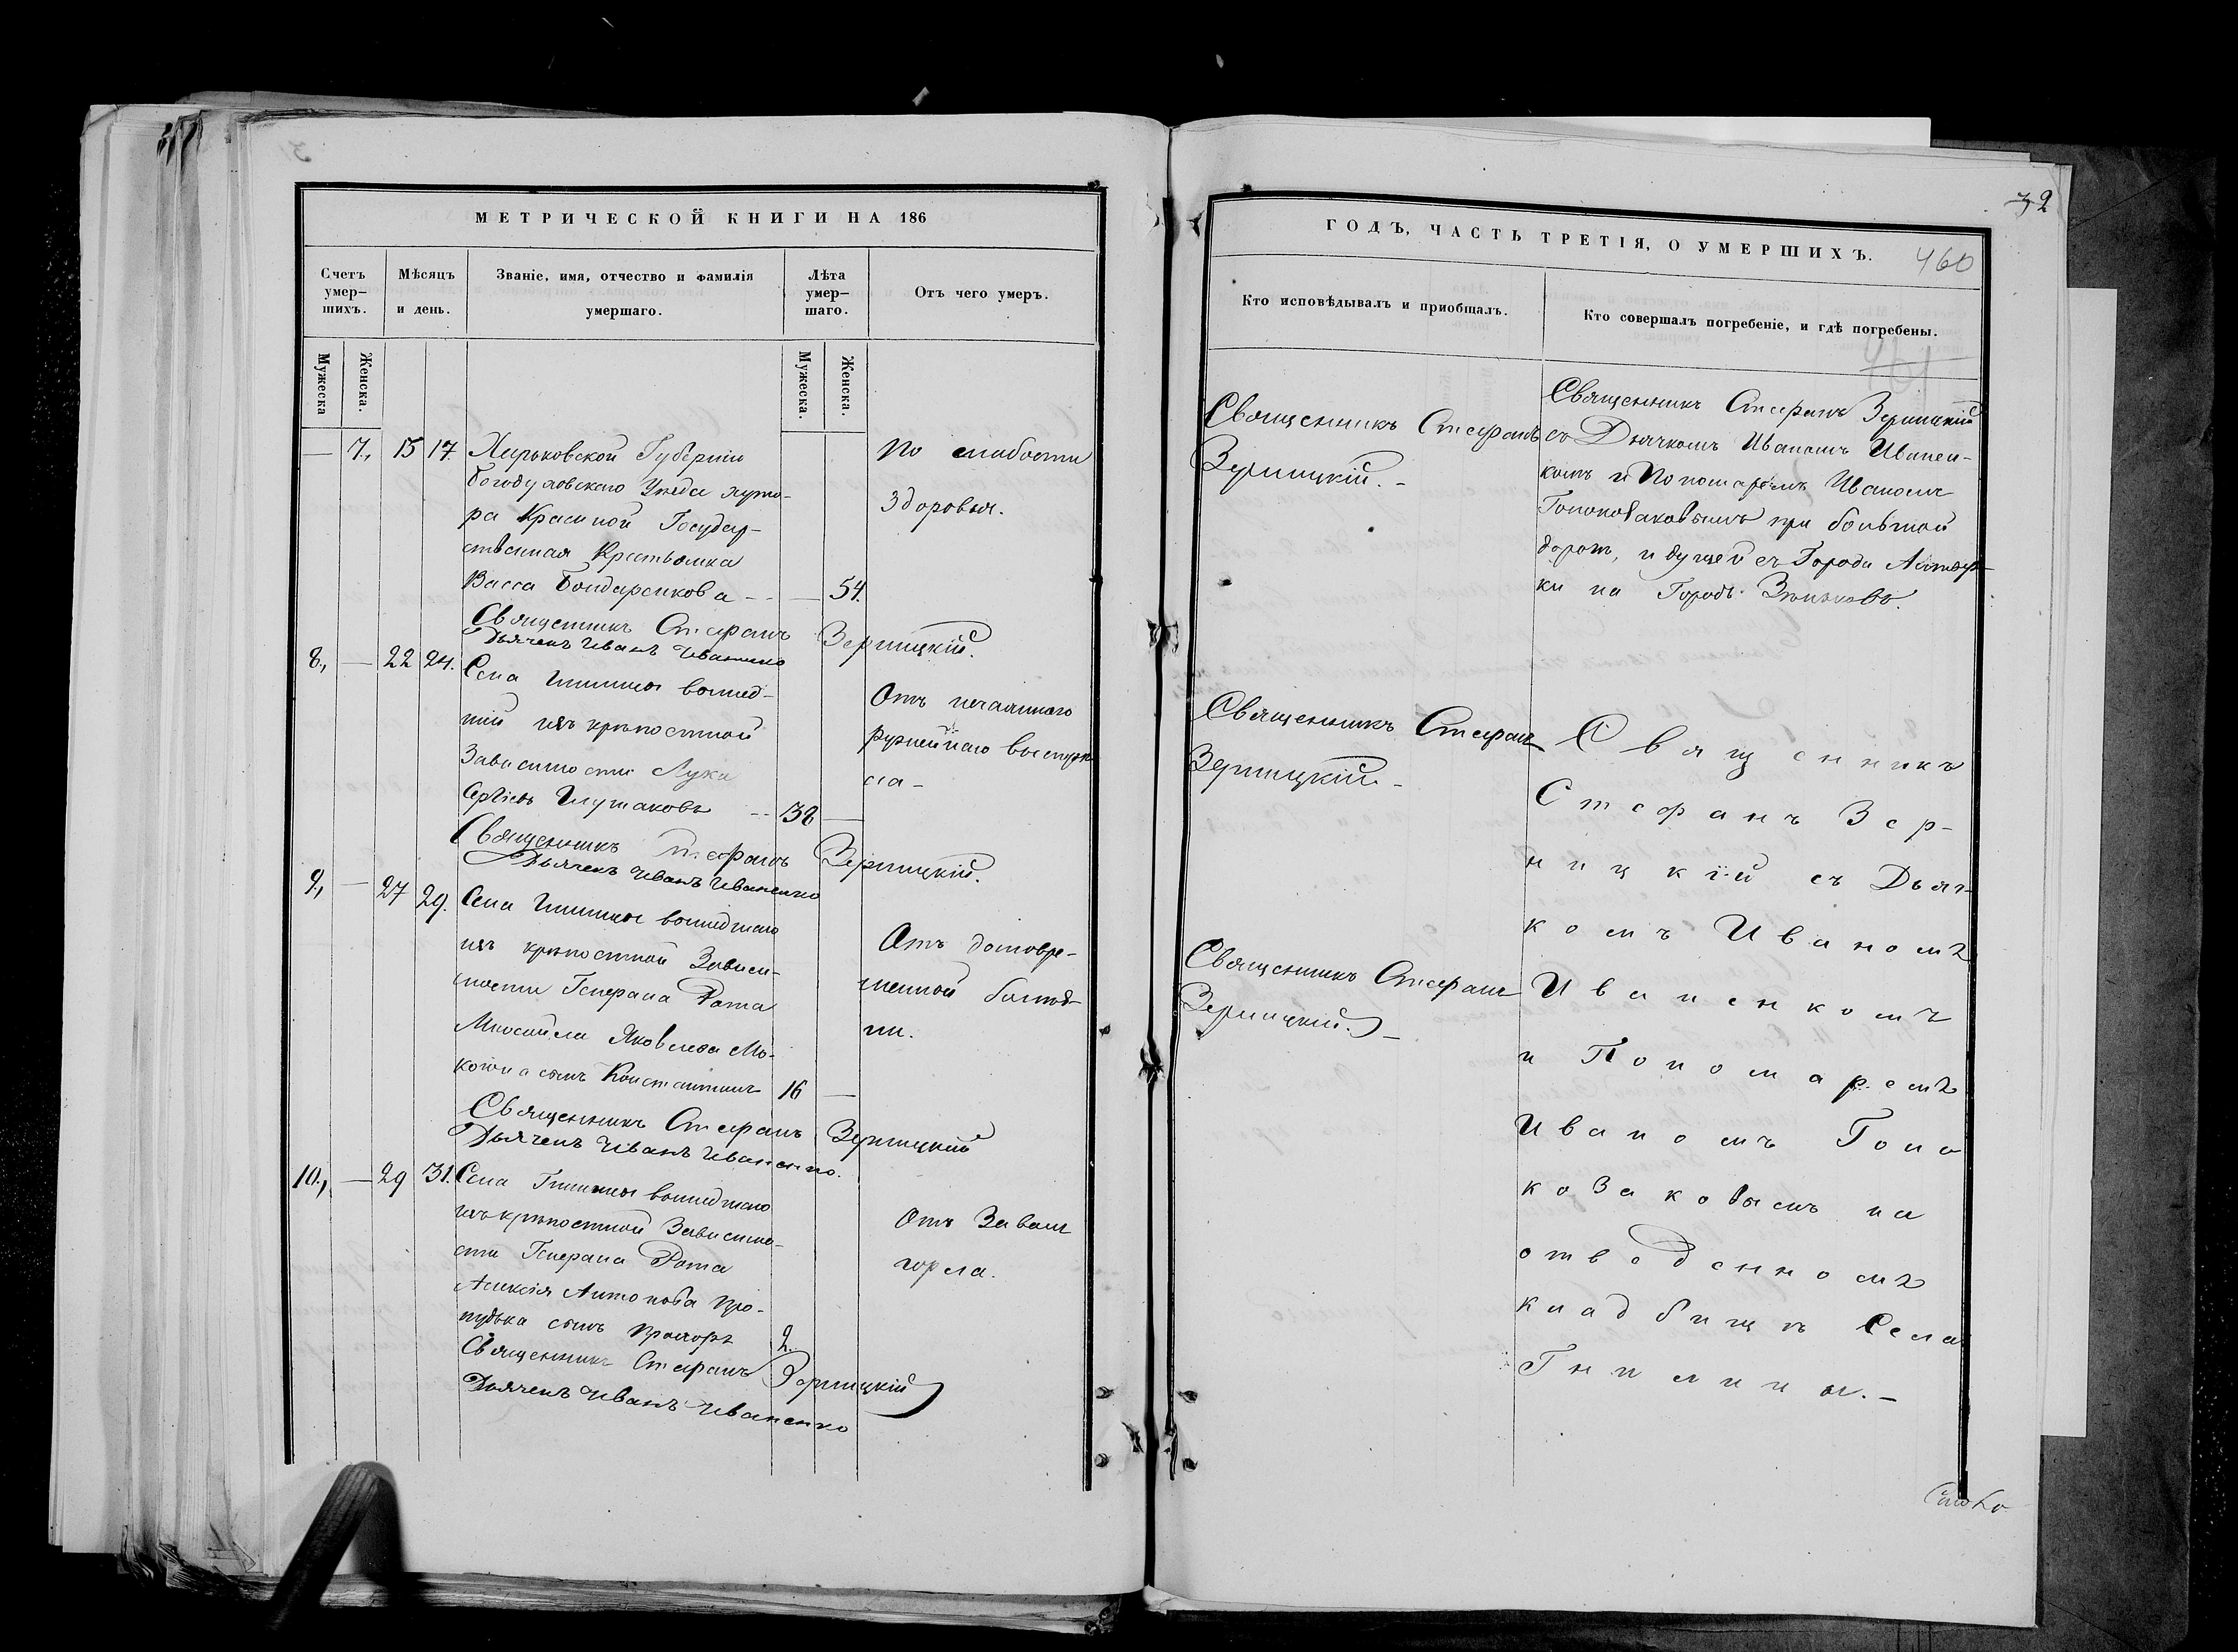 МЕТРИЧЕСКОЙ КНИГИ НА 186
Счетъ умер-
шихъ.
Мѣсяцъ
и день.
Званіе, имя, отчество и фамилія
умершаго.
Лѣта
умер-
шаго.
Отъ чего умеръ.
Мужеска
Женска.
Мужеска.
Женска.
— 7., 15 17. Харьковской Губерніи
Богодуховскаго Уезда хуто-
ра Красной Государ-
ственная Крестьянка
Васса Бондаренкова -- — 54.
По слабости
здоровья.
Священникъ Стефанъ Зерницкій.
Дьячекъ Иванъ Иваненко
8., — 22 24. Села Гнилицы вышед-
шій изъ крѣпостной
Зависимости Лука
Сергіевъ -- 38 —
Отъ нечаяннаго
ружейнаго выстре-
ла –
Священникъ Стефанъ Зерницкій.
Дьячекъ Иванъ Иваненко
9., — 27 29. Села Гнилицы вышедшаго
изъ крѣпостной Зависи-
мости Генерала Рота
Яковлева Мо-
сынъ Константинъ 16 —
Отъ долговре-
менной болѣз-
ни.
Священникъ Стефанъ Зерницкій
Дьячекъ Иванъ Иваненко.
10., — 29 31. Села Гнилицы вышедшаго
изъ крѣпостной Зависимо-
сти Генерала Рота
Алексія Антонова
сынъ 2.
Отъ Завалы
горла.
Священникъ Стефанъ Зерницкій
Дьячекъ Иванъ Иваненко
32
ГОДЪ, ЧАСТЬ ТРЕТІЯ, О УМЕРШИХЪ.
460
Кто исповѣдывалъ и приобщалъ.
Кто совершалъ погребеніе, и гдѣ погребены.
Священникъ Стефанъ
Зерницкій. –
Священникъ Стефанъ Зерницкій
съ Дьячкомъ Иваномъ Иванен-
комъ и Пономаремъ Иваномъ
Голоковаковымъ при большой
дорогѣ, идущей съ Города Ахтыр-
ки на Городъ Зѣньковъ.
Священникъ Стефанъ
Зерницкій –
Священникъ Стефанъ
Зерницкій. –
Священникъ
Стефанъ Зер-
ницкій съ Дьяч-
комъ Иваномъ
Иваненкомъ
и Пономаремъ
Иваномъ Голо
козаковымъ на
отведенномъ
кладбищѣ Села
Гнилицы. –